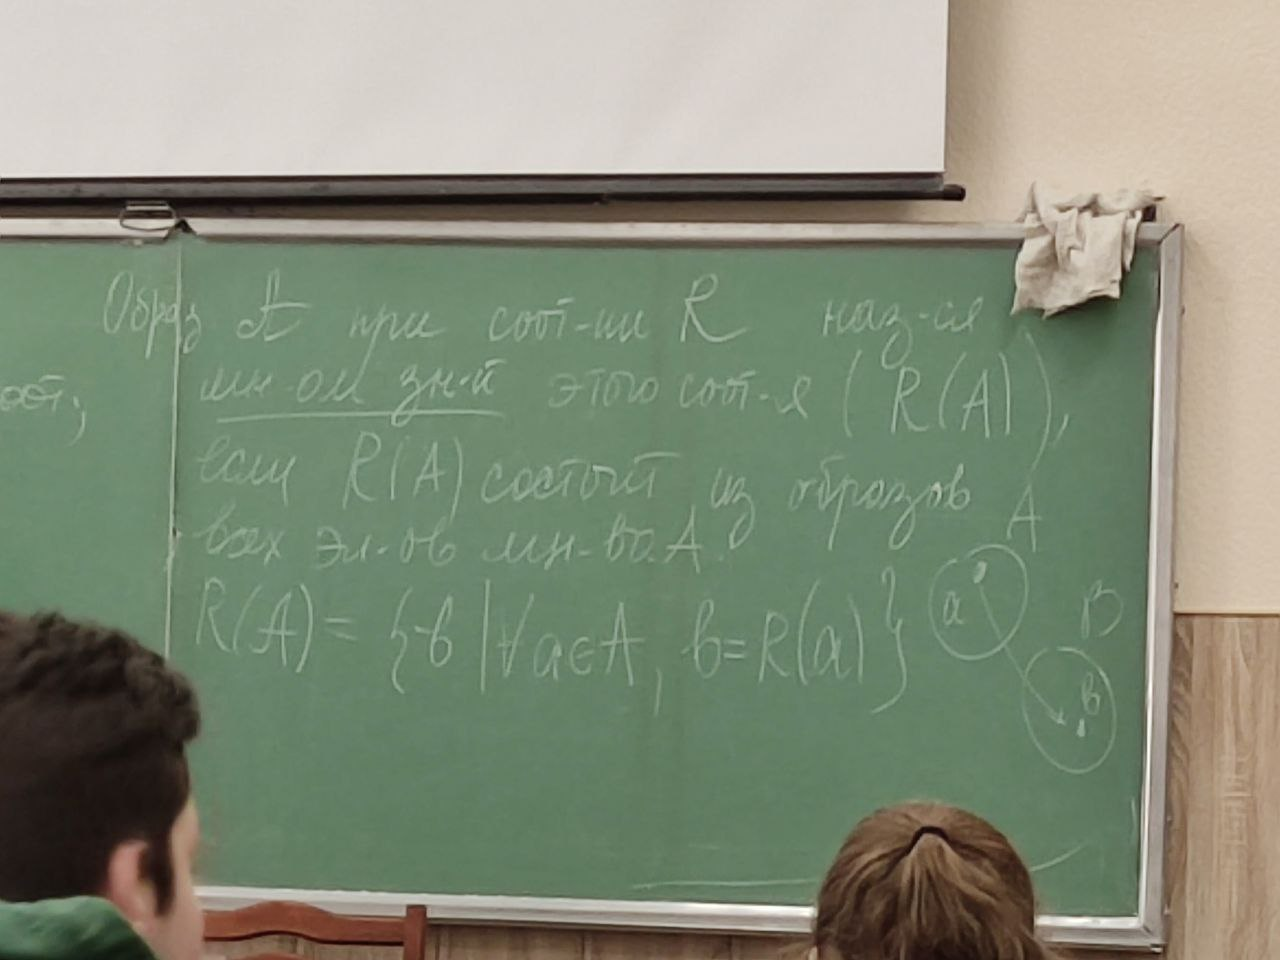 Образ A при соот-ии R наз-ся
мн-ом зн-й этого соот-я (R(A)),
если R(A) состоит из образов
всех эл-ов мн-ва A.
R(A) = {в | ∀ a ∈ A, в = R(a)}
A
a
B
в